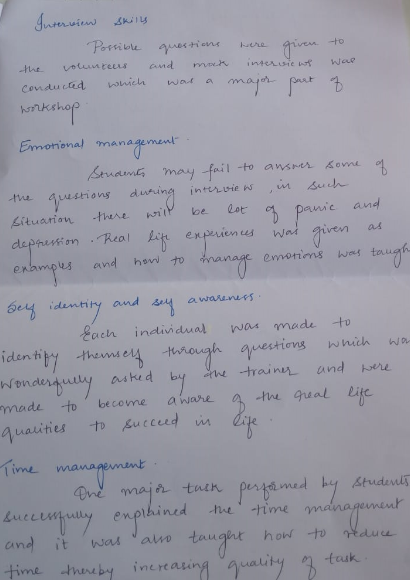 Interview skills
Possible questions were given to
the volunteers and mock interviews was
conducted which was a major part of
workshop
Emotional management.
Students may fail to answer some of
the questions during interview, in such
situation there will be lot of panic and
depression. Real life experiences was given as
examples and how to manage emotions was taugh
Self identity and self awareness.
Each individual was made to
identify themself through questions which wa
wonderfully asked by the trainer and were
made to become aware of the real life
qualities to succeed in life.
Time management.
One major task performed by students
successfully explained the time management
and it was also taught how to reduce
time thereby increasing quality of task.